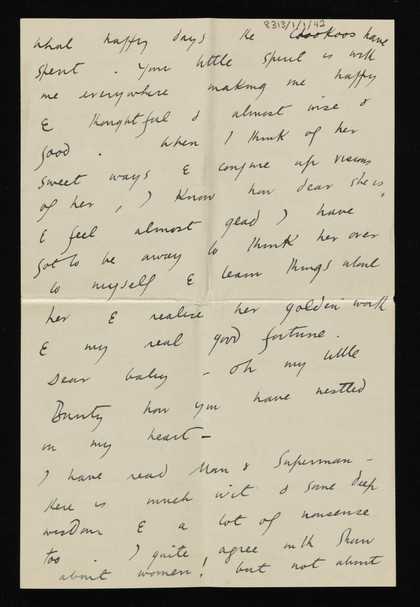 8313/1/1/42
What happy days the Cuckoos have
spent. Your little spirit is with
me everywhere making me happy
& thoughtful & almost wise &
good. When I think of her
sweet ways & conjure up visions
of her, I know how dear she is,
& feel almost glad I have
got to be away to think her over
to myself & learn things about
her & realise her golden worth
& my real good fortune.
Dear baby – oh my little
Bunty how you have nestled
in my heart –
I have read Man & Superman –
there is much wit & some deep
wisdom & a lot of nonsense
too. I quite agree with Shaw
about women! but not about